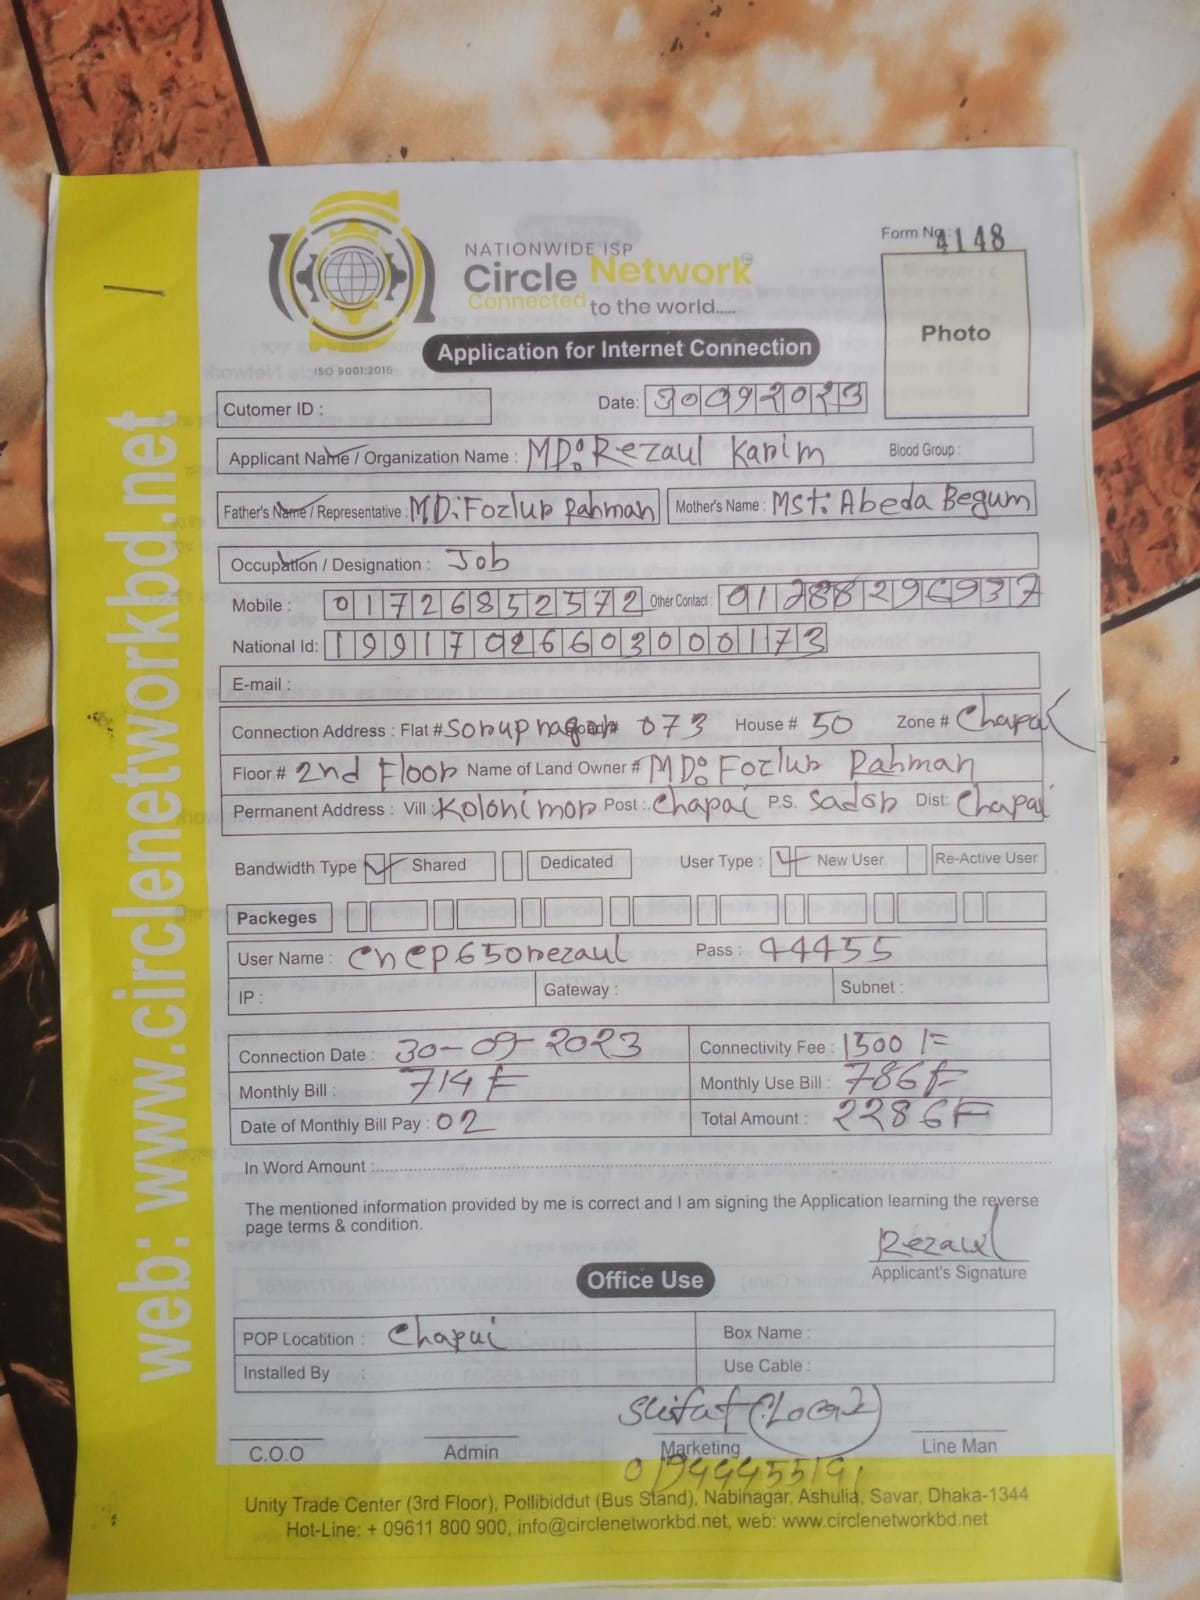 Form No: 4148
NATIONWIDE ISP
Circle Network
Connected to the world.....
ISO 9001:2016
Application for Internet Connection
Photo
Cutomer ID :
Date: 30092023
Applicant Name / Organization Name : MD: Rezaul Karim Blood Group :
Father's Name / Representative : MD: Fozlur Rahman Mother's Name : Mst: Abeda Begum
Occupation / Designation : Job
Mobile : 01726852572 Other Contact : 01788296937
National Id: 19917026603000173
E-mail :
Connection Address : Flat # Sorupnagar 073 House # 50 Zone # Chapai
Floor # 2nd Floor Name of Land Owner # MD: Fozlur Rahman
Permanent Address : Vill : Koloni mor Post : Chapai P.S. Sador Dist: Chapai
Bandwidth Type Shared Dedicated User Type : New User Re-Active User
Packeges
User Name : cnep650rezaul Pass : 44455
IP : Gateway : Subnet :
Connection Date : 30-09-2023 Connectivity Fee : 1500/=
Monthly Bill : 714/= Monthly Use Bill : 786/=
Date of Monthly Bill Pay : 02 Total Amount : 2286/=
In Word Amount :
The mentioned information provided by me is correct and I am signing the Application learning the reverse
page terms & condition.
Rezaul
Applicant's Signature
Office Use
POP Locatition : Chapai Box Name :
Installed By : Use Cable :
C.O.O Admin Marketing Line Man
Unity Trade Center (3rd Floor), Pollibiddut (Bus Stand), Nabinagar, Ashulia, Savar, Dhaka-1344
Hot-Line: + 09611 800 900, info@circlenetworkbd.net, web: www.circlenetworkbd.net
web: www.circlenetworkbd.net